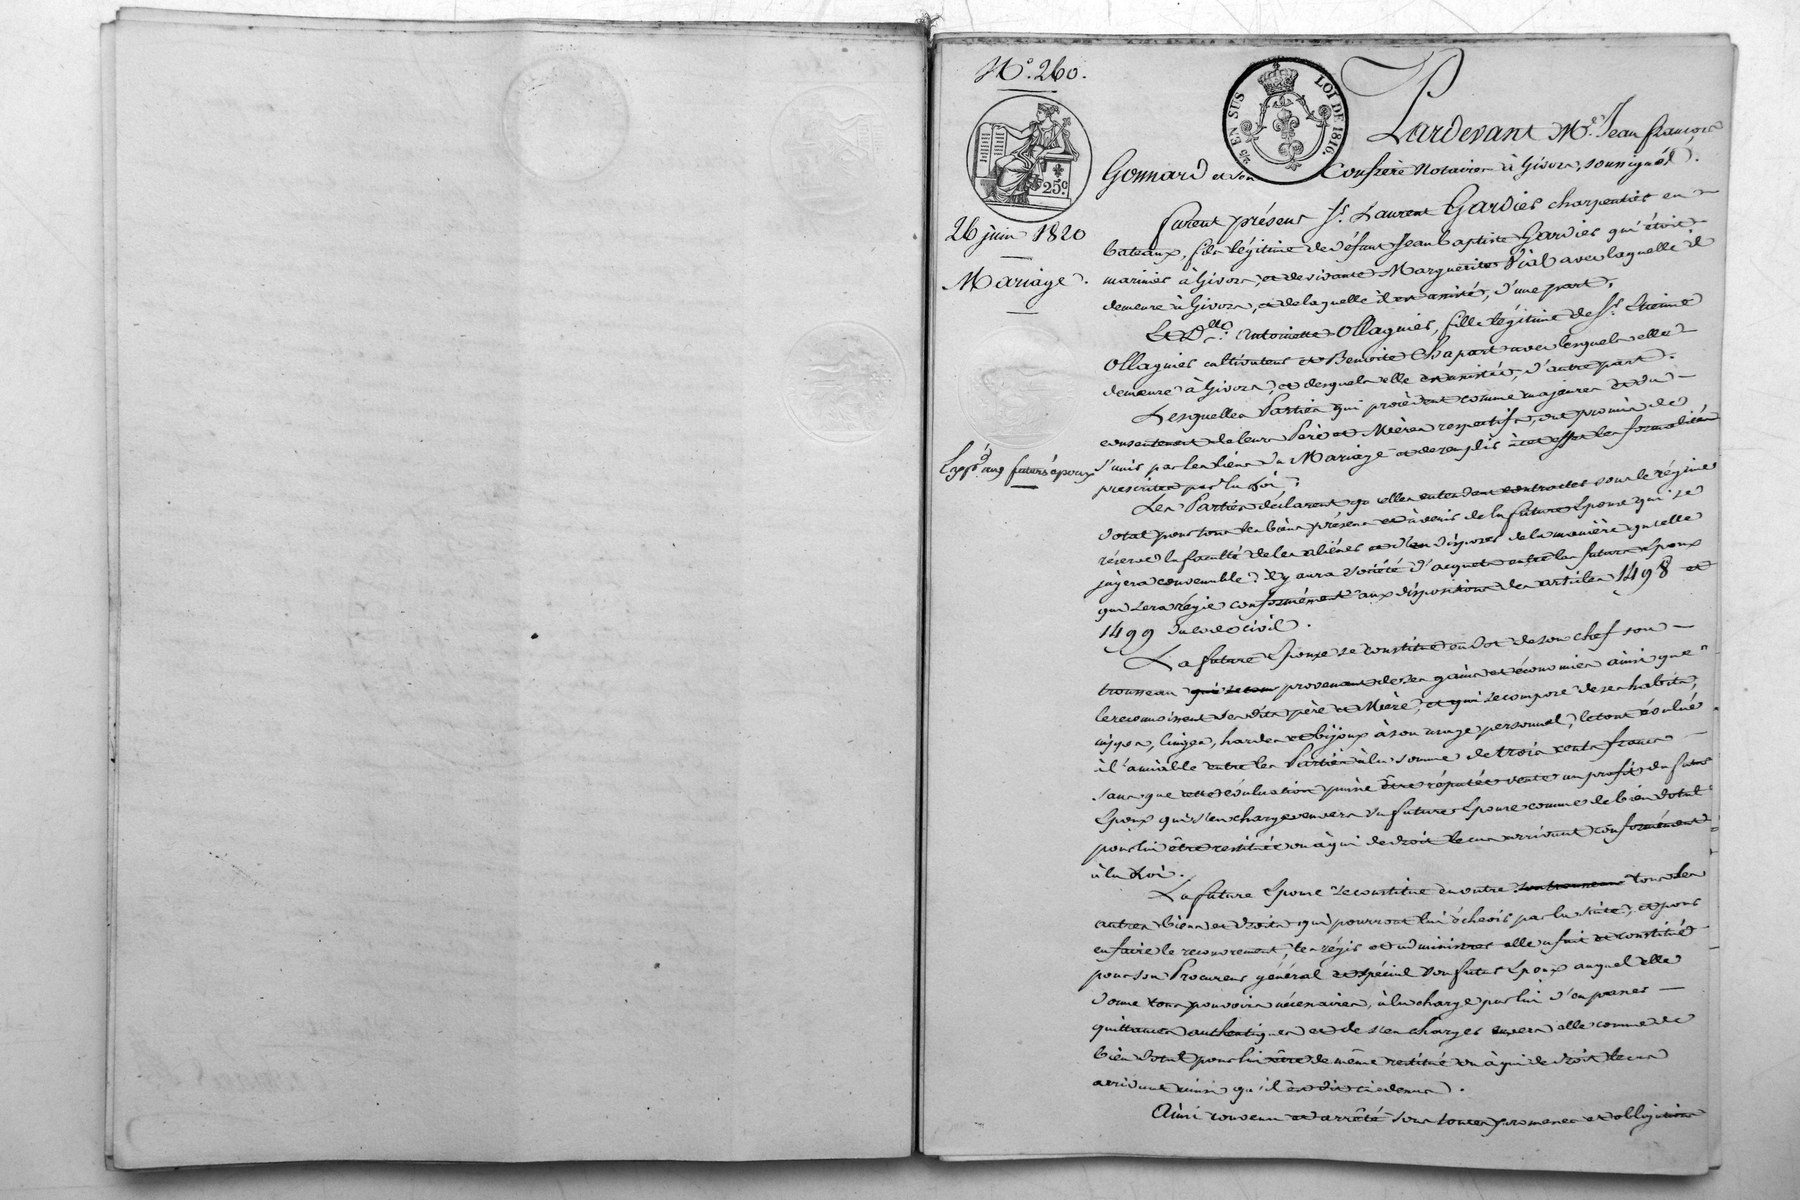 N.º 260.
25 EN SUS
LOI DE 1816.
25.c
26 juin 1820
Mariage.
Exp.d aux futurs époux
Pardevant M.e Jean françois
Gonnard et son Confrère Notaires à Givors, soussignés.
furent présens S.r Laurent Gardies charpentier en
bateaux, fils légitime de défunt Jean baptiste Gardies qui étoit
marinier à Givors, et de vivante Marguerite Vial avec laquelle il
demeure à Givors, et de laquelle il est assisté, d'une part.
Et D.lle Antoinette Ollagnier, fille légitime de S.r Etienne
Ollagnier cultivateur et Benoite Chapart avec lesquels elle
demeure à Givors, et desquels elle est assistée, d'autre part.
Lesquelles Parties qui procèdent comme majeures et du
consentement de leurs Père et Mères respectifs, ont promis de
s'unir par les liens du Mariage et de remplir à cet effet les formalités
prescrites par la Loi.
Les Parties déclarent qu'elles entendent contracter sous le régime
dotal pour tous les biens présens et à venir de la future Epouse qui se
réserve la faculté de les aliéner et d'en disposer de la manière qu'elle
jugera convenable; il y aura société d'acquets entre les futurs Epoux
qui sera régie conformément aux dispositions des articles 1498 et
1499 du code civil.
La future Epouse se constitue en dot de son chef son
trousseau provenant de ses gains et économies ainsi que
le reconnoissent ses dits père et Mère, et qui se compose de ses habits,
nippes, linges, hardes et bijoux à son usage personnel, le tout évalué
à l'amiable entre les Parties à la somme de trois cents francs
sans que cette évaluation puisse être réputée vente au profit du futur
Epoux qui s'en charge envers sa future Epouse comme de bien dotal
pour lui être restitué ou à qui de droit le cas arrivant conformément
à la Loi.
La future Epouse se constitue en outre son trousseau tous les
autres biens et droits qui pourront lui échoir par la suite, et pour
en faire le recouvrement, les régir et administrer elle a fait et constitué
pour son Procureur général et spécial son futur Epoux auquel elle
donne tous pouvoirs nécessaires, à la charge par lui d'en passer
quittances authentiques et de s'en charger envers elle comme de
bien dotal pour lui être de même restitué ou à qui de droit le cas
arrivant ainsi qu'il est dit ci dessus.
Ainsi convenu et arrêté sous toutes promesses et obligations